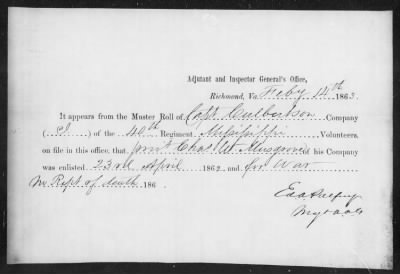 Adjutant and Inspector General's Office,
Richmond, Va. Feby 14th 1863.
It appears from the Muster Roll of Capt Culbertson Company
( ) of the 40th Regiment Mississippi Volunteers,
on file in this office, that Chas W. Musgrove of his Company
was enlisted 23rd April 1862, and for War
No Rept of death 186 .